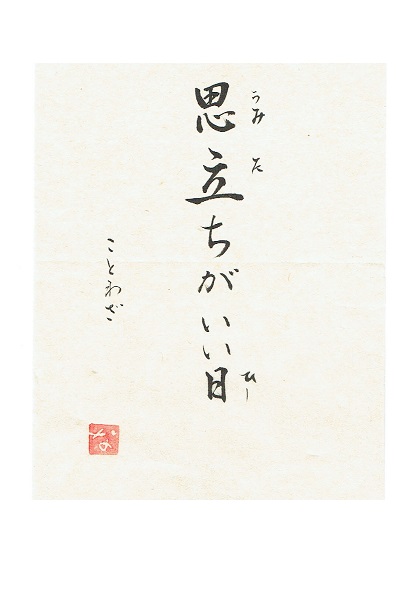 思立ちがいい日
うみ
た
ひー
ことわざ